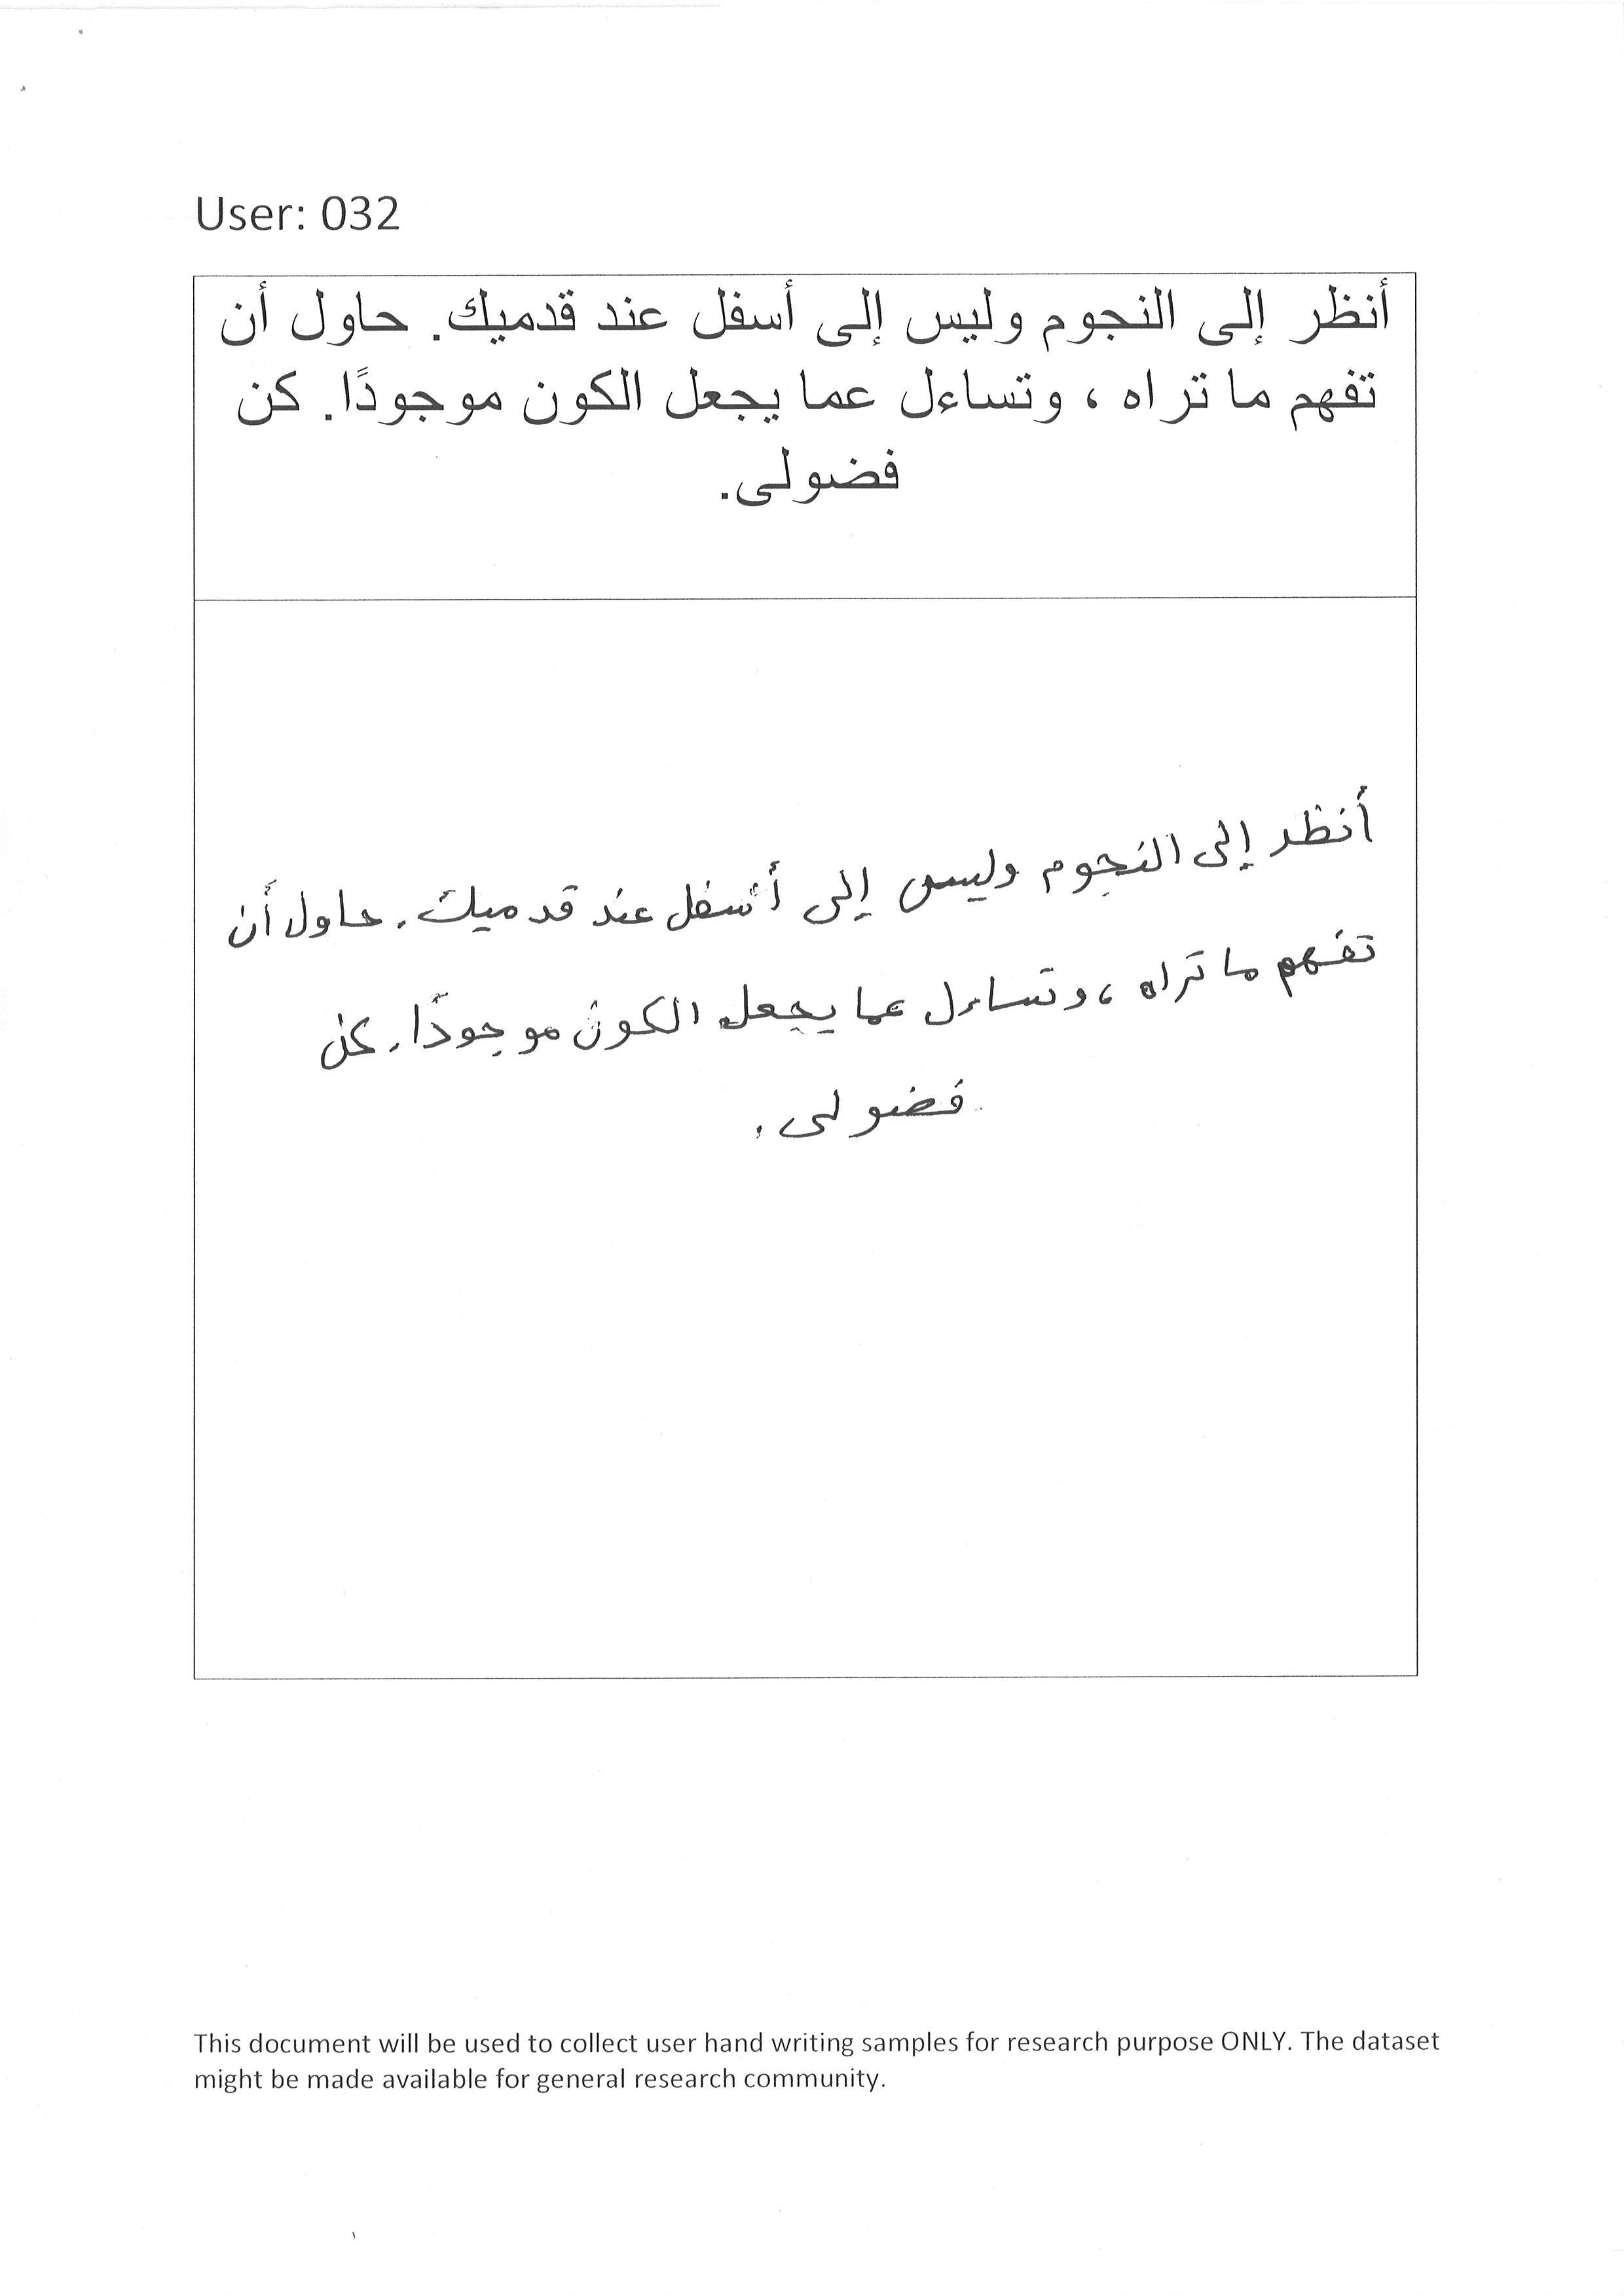 User: 032
أنظر إلى النجوم وليس إلى أسفل عند قدميك. حاول أن
تفهم ما تراه ، وتساءل عما يجعل الكون موجودًا. كن
فضولى.
أنظر إلى النجوم وليس إلى أسفل عند قدميك. حاول أن
تفهم ما تراه ، وتساءل عما يجعل الكون موجودًا. كن
فضولى.
This document will be used to collect user hand writing samples for research purpose ONLY. The dataset
might be made available for general research community.